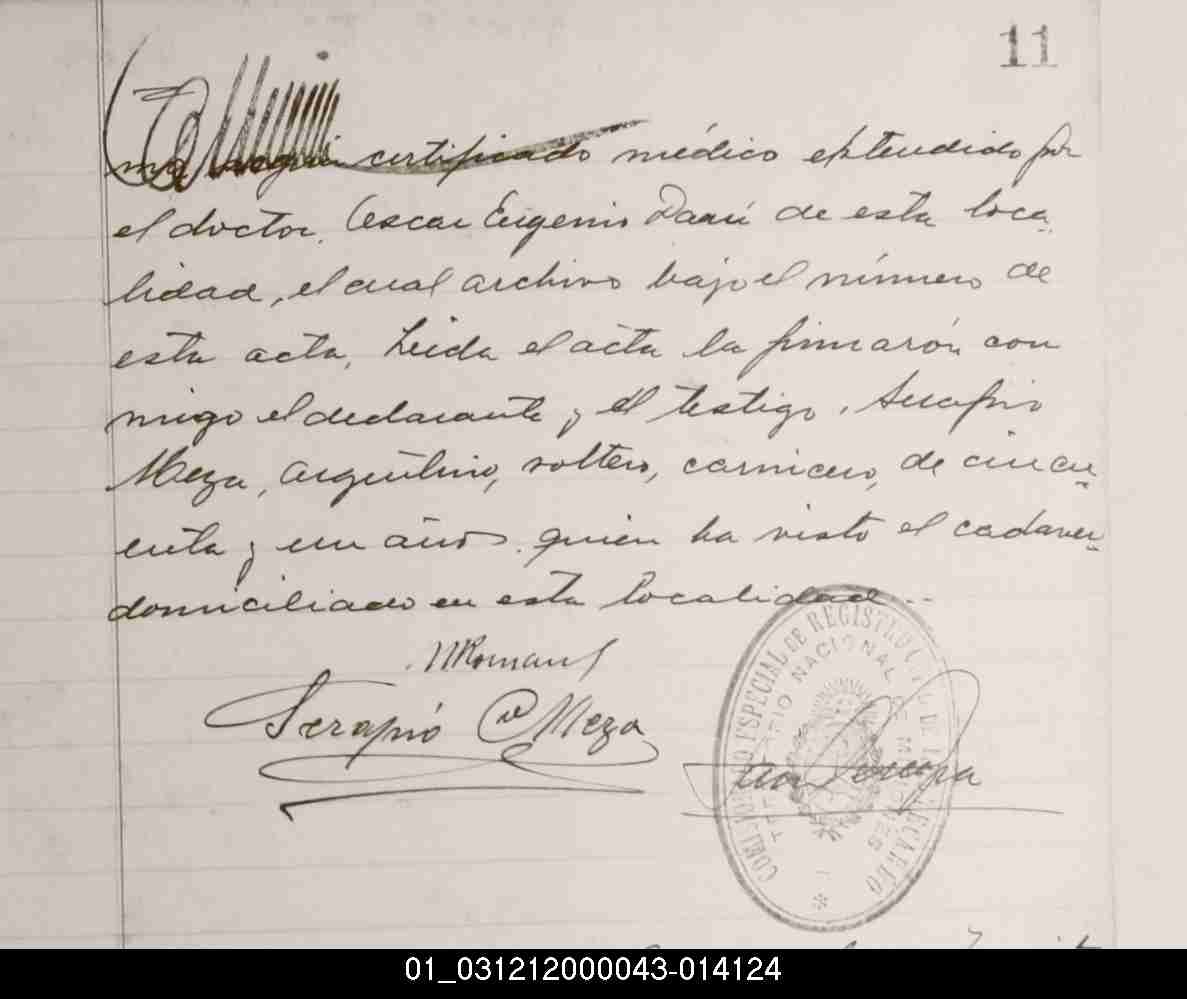 11
ma según certificado médico extendido por
el doctor. Oscar Eugenio Darú de esta loca
lidad, el cual archivo bajo el número de
esta acta, Leida el acta la firmarón con
migo el declarante y el testigo, Serafio
Meza, argentino, soltero, carnicero, de cincu
enta y un años. quien ha visto el cadaver
domiciliado en esta localidad..
Serapió Meza
ESPECIAL DE REGISTRO CIVIL DE
TERRITORIO NACIONAL DE MISIONES
01_031212000043-014124